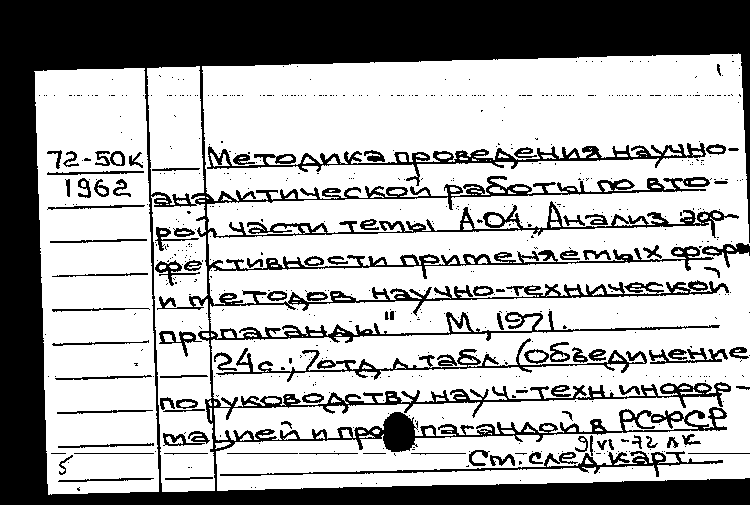 1
72-50к Методика проведения научно-
1962 аналитической работы по вто-
рой части темы А-04. „Анализ эф-
фективности применяемых форм
и методов научно-технической
пропаганды." М., 1971.
24с.; 7отд.л.табл. (Объединение
по руководству науч.-техн. инфор-
мацией и пропагандой в РСФСР
9/VI-72 ЛК
5 См. след. карт.